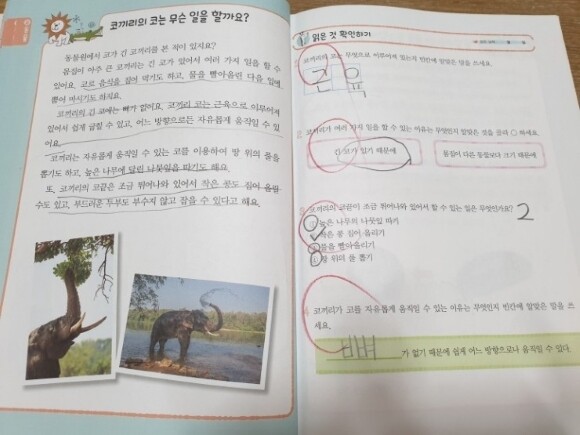 코끼리의 코는 무슨 일을 할까요?
동물원에서 코가 긴 코끼리를 본 적이 있지요?
몸집이 아주 큰 코끼리는 긴 코가 있어서 여러 가지 일을 할 수
있어요. 코로 음식을 집어 먹기도 하고, 물을 빨아올린 다음 입에
뿜어 마시기도 하지요.
코끼리의 긴 코에는 뼈가 없어요. 코끼리 코는 근육으로 이루어져
있어서 쉽게 굽힐 수 있고, 어느 방향으로든 자유롭게 움직일 수 있
어요.
코끼리는 자유롭게 움직일 수 있는 코를 이용하여 땅 위의 풀을
뽑기도 하고, 높은 나무에 달린 나뭇잎을 따기도 해요.
또, 코끼리의 코끝은 조금 튀어나와 있어서 작은 콩도 집어 올릴
수도 있고, 부드러운 두부도 부수지 않고 잡을 수 있다고 해요.
읽은 것 확인하기
1 코끼리의 코는 무엇으로 이루어져 있는지 빈칸에 알맞은 말을 쓰세요.
근 육
2 코끼리가 여러 가지 일을 할 수 있는 이유는 무엇인지 알맞은 것을 골라 ○ 하세요.
긴 코가 있기 때문에
몸집이 다른 동물보다 크기 때문에
3 코끼리의 코끝이 조금 튀어나와 있어서 할 수 있는 일은 무엇인가요? 2
① 높은 나무의 나뭇잎 따기
② 작은 콩 집어 올리기
③ 물을 빨아올리기
④ 땅 위의 풀 뽑기
4 코끼리가 코를 자유롭게 움직일 수 있는 이유는 무엇인지 빈칸에 알맞은 말을 쓰
세요.
뼈 가 없기 때문에 쉽게 어느 방향으로나 움직일 수 있다.